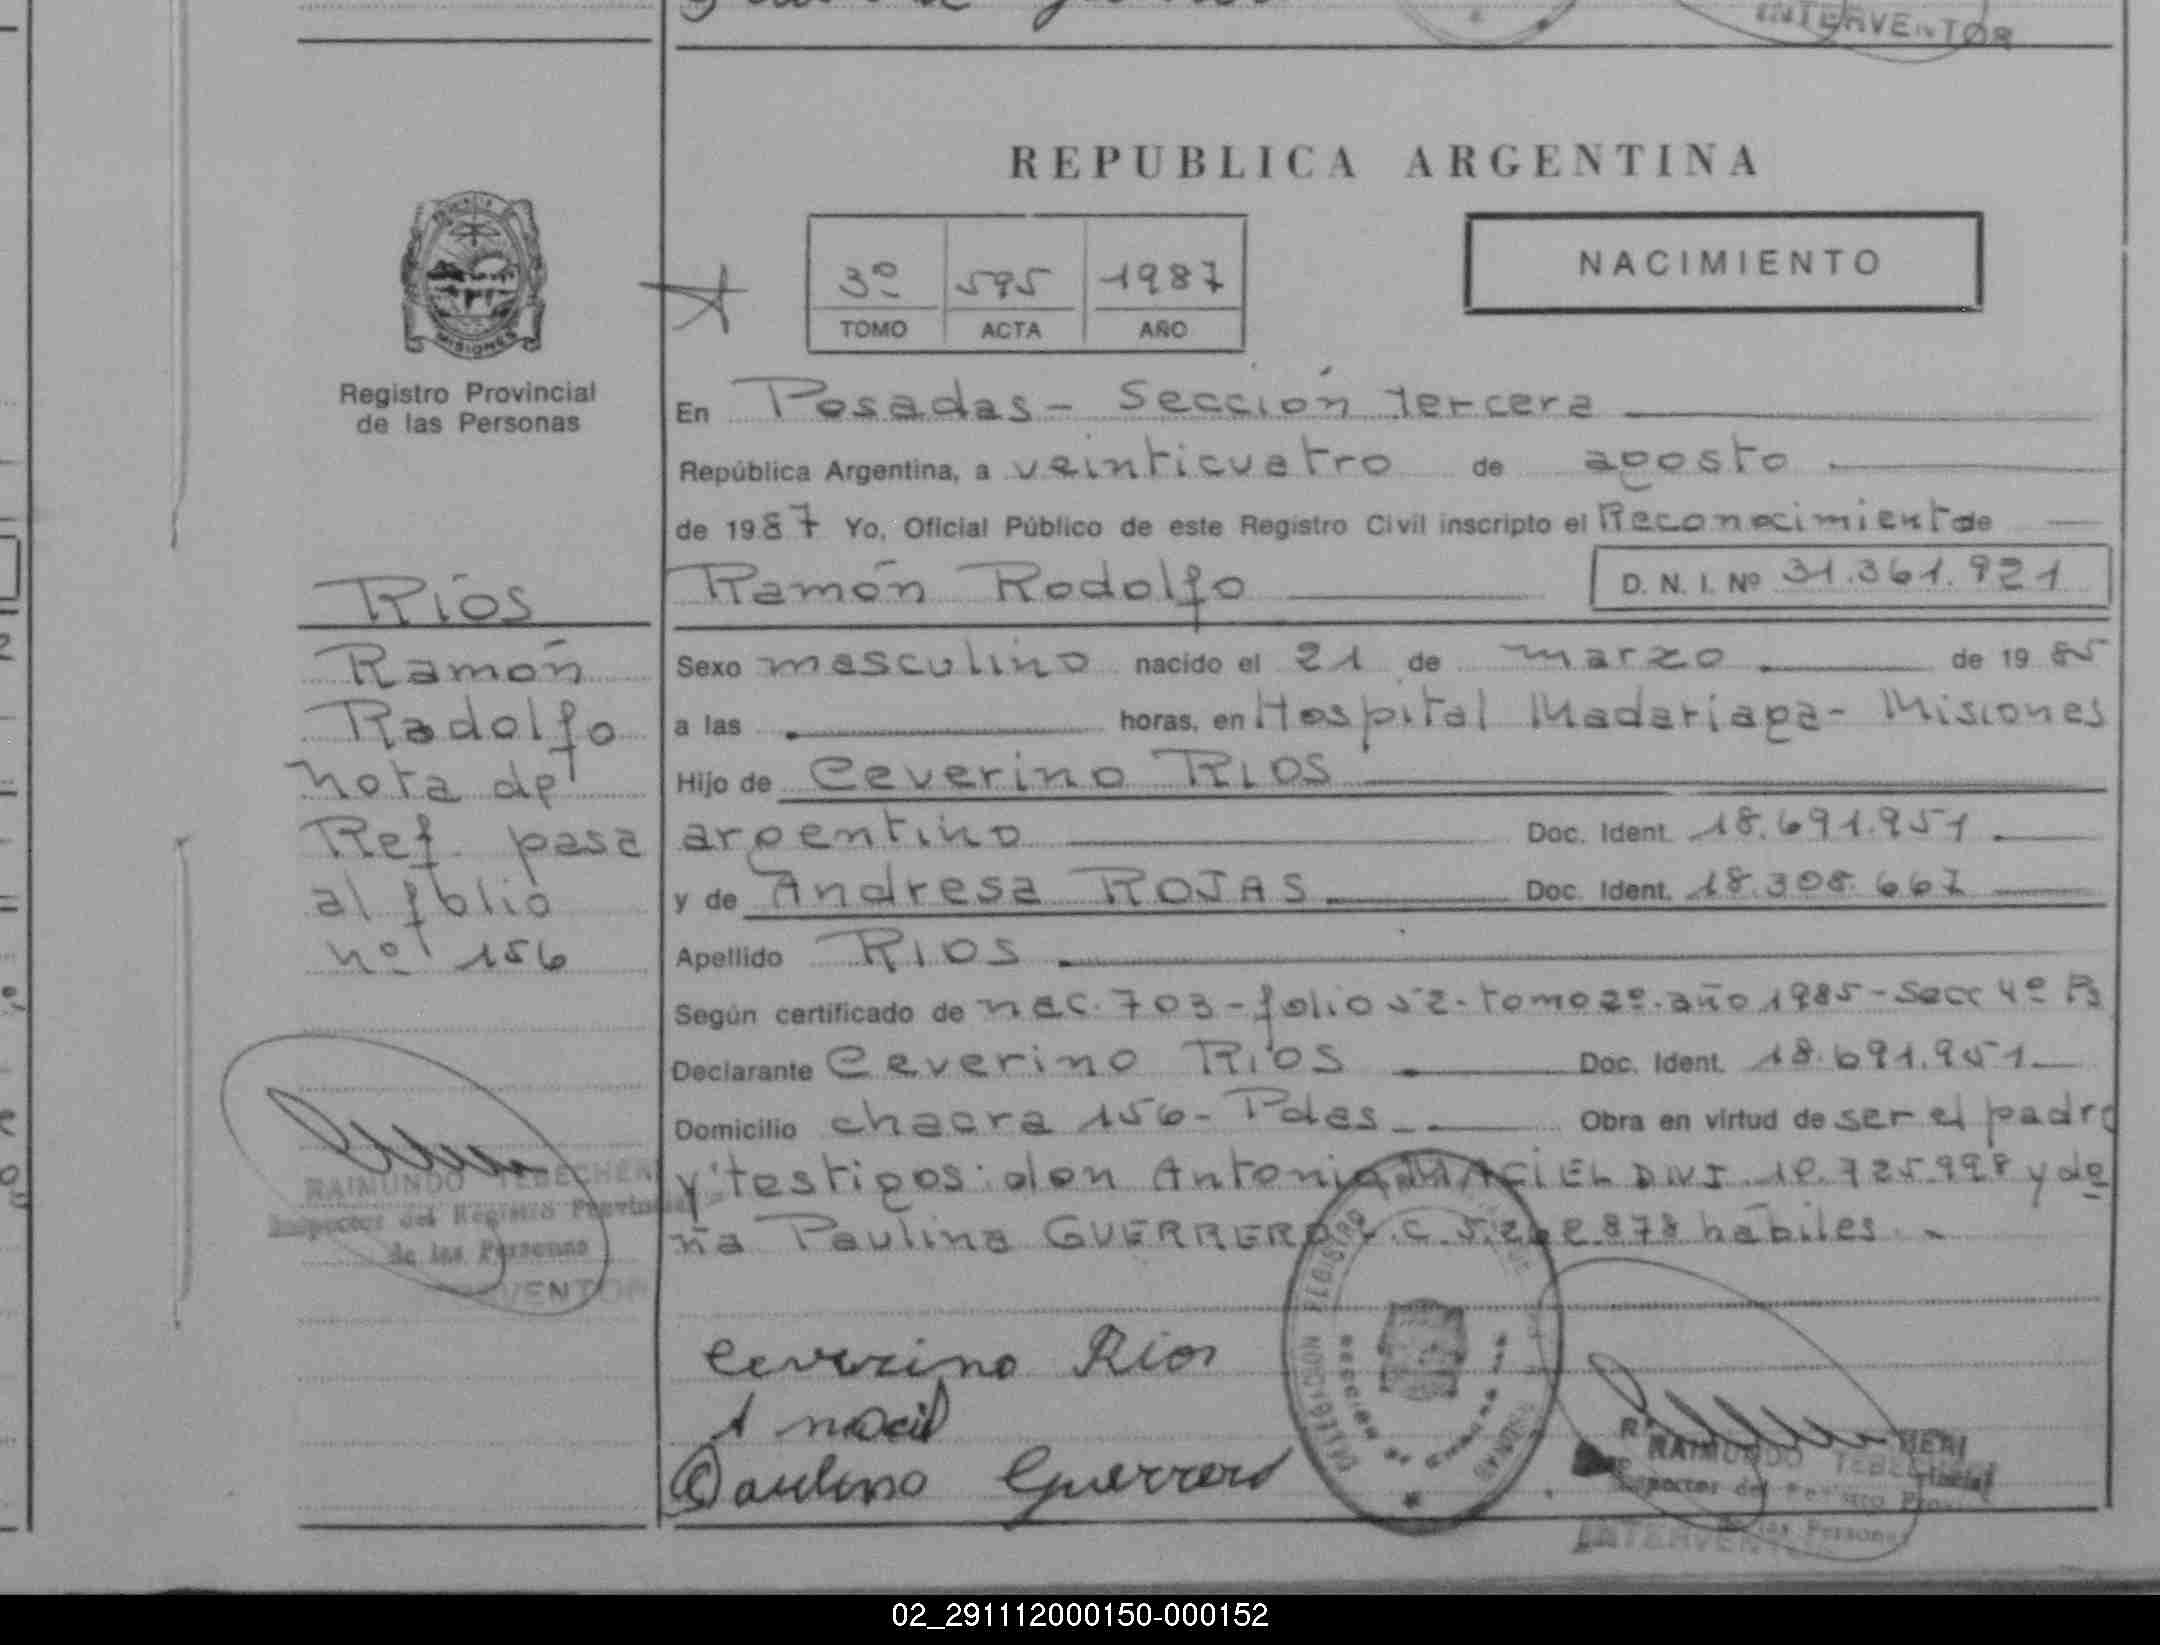 INTERVENTOR
REPUBLICA ARGENTINA
NACIMIENTO
3º 595 1987
TOMO ACTA AÑO
MISIONES
Registro Provincial
de las Personas
En Posadas - Sección tercera
República Argentina, a veinticuatro de agosto
de 1987 Yo, Oficial Público de este Registro Civil inscripto el Reconocimient de
Ramón Rodolfo D. N. I. Nº 31.361.921
Sexo masculino nacido el 21 de marzo de 1985
a las horas, en Hospital Madariaga - Misiones
Hijo de Ceverino RIOS
argentino Doc. Ident. 18.691.951
y de Andresa ROJAS Doc. Ident. 18.308.667
Apellido RIOS
Según certificado de nac. 703 - folio 52 - tomo 2º - año 1985 - Secc 4º Ps
Declarante Ceverino RIOS Doc. Ident. 18.691.951
Domicilio chacra 156 - Pdas Obra en virtud de ser el padre
y testigos: don Antonio MACIEL DNI. 725.998 y do
ña Paulina GUERRERO L.C. 878 hábiles.
Ríos
Ramón
Rodolfo
nota de
Ref. pasa
al folio
nº 156
RAIMUNDO TEBECHERI
Inspector del Registro Provincial
de las Personas
INTERVENTOR
Ceverino Rios
A macil
Paulino Guerrero
DELEGACION REGISTRO
RAIMUNDO TEBECHERI
Inspector del Registro Provincial
de las Personas
INTERVENTOR
02_291112000150-000152